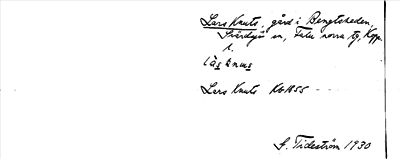 Lars Knuts, gård i Bengtsheden,
Svärdsjö sn, Falu norra tg, Kopp.
l.
Lars Knuts Kb 1855 - - -
G. Tideström 1930